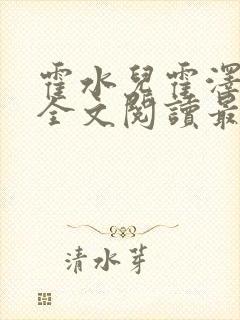 霍水兒霍澤
全文閱讀最
清水芽